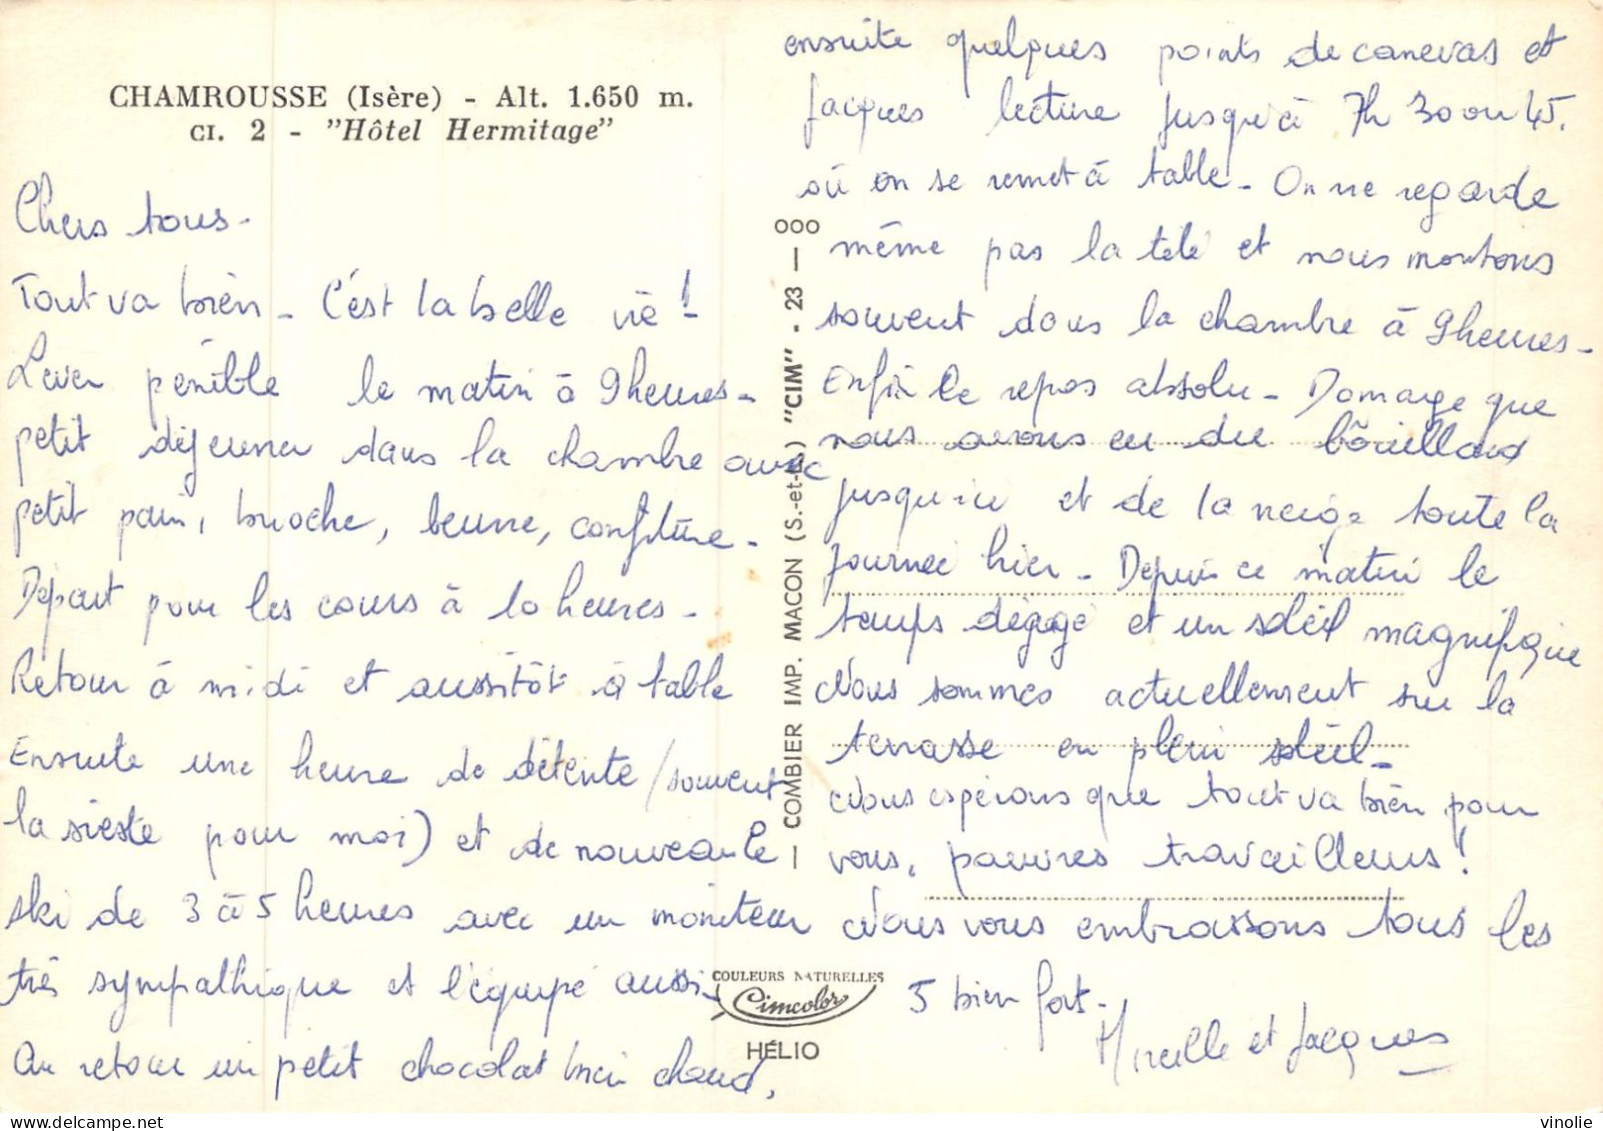 CHAMROUSSE (Isère) - Alt. 1.650 m.
CI. 2 - "Hôtel Hermitage"
Chers tous -
Tout va bien - C'est la belle vie !
Lever pénible le matin à 9 heures -
petit déjeuner dans la chambre avec
petit pain, brioche, beurre, confiture -
Départ pour les cours à 10 heures -
Retour à midi et aussitôt à table
Ensuite une heure de détente (souvent
la sieste pour moi) et de nouveau le
ski de 3 à 5 heures avec un moniteur
très sympathique et l'équipe aussi -
Au retour un petit chocolat bien chaud,
ensuite quelques points de canevas et
Jacques lecture jusqu'à 7h 30 ou 45.
où on se remet à table - On ne regarde
même pas la télé et nous montons
souvent dans la chambre à 9 heures -
Enfin le repos absolu - Domage que
nous avons eu du brouillard
jusqu'ici et de la neige toute la
journée hier - Depuis ce matin le
temps dégagé et un soleil magnifique
Nous sommes actuellement sur la
terrasse en plein soleil -
Nous espérons que tout va bien pour
vous, pauvres travailleurs !
Nous vous embrassons tous les
5 bien fort -
Mireille et Jacques
COMBIER IMP. MACON (S.-et-L.) "CIM" - 23 — OOO
COULEURS NATURELLES
Cimcolor
HÉLIO
vinolie